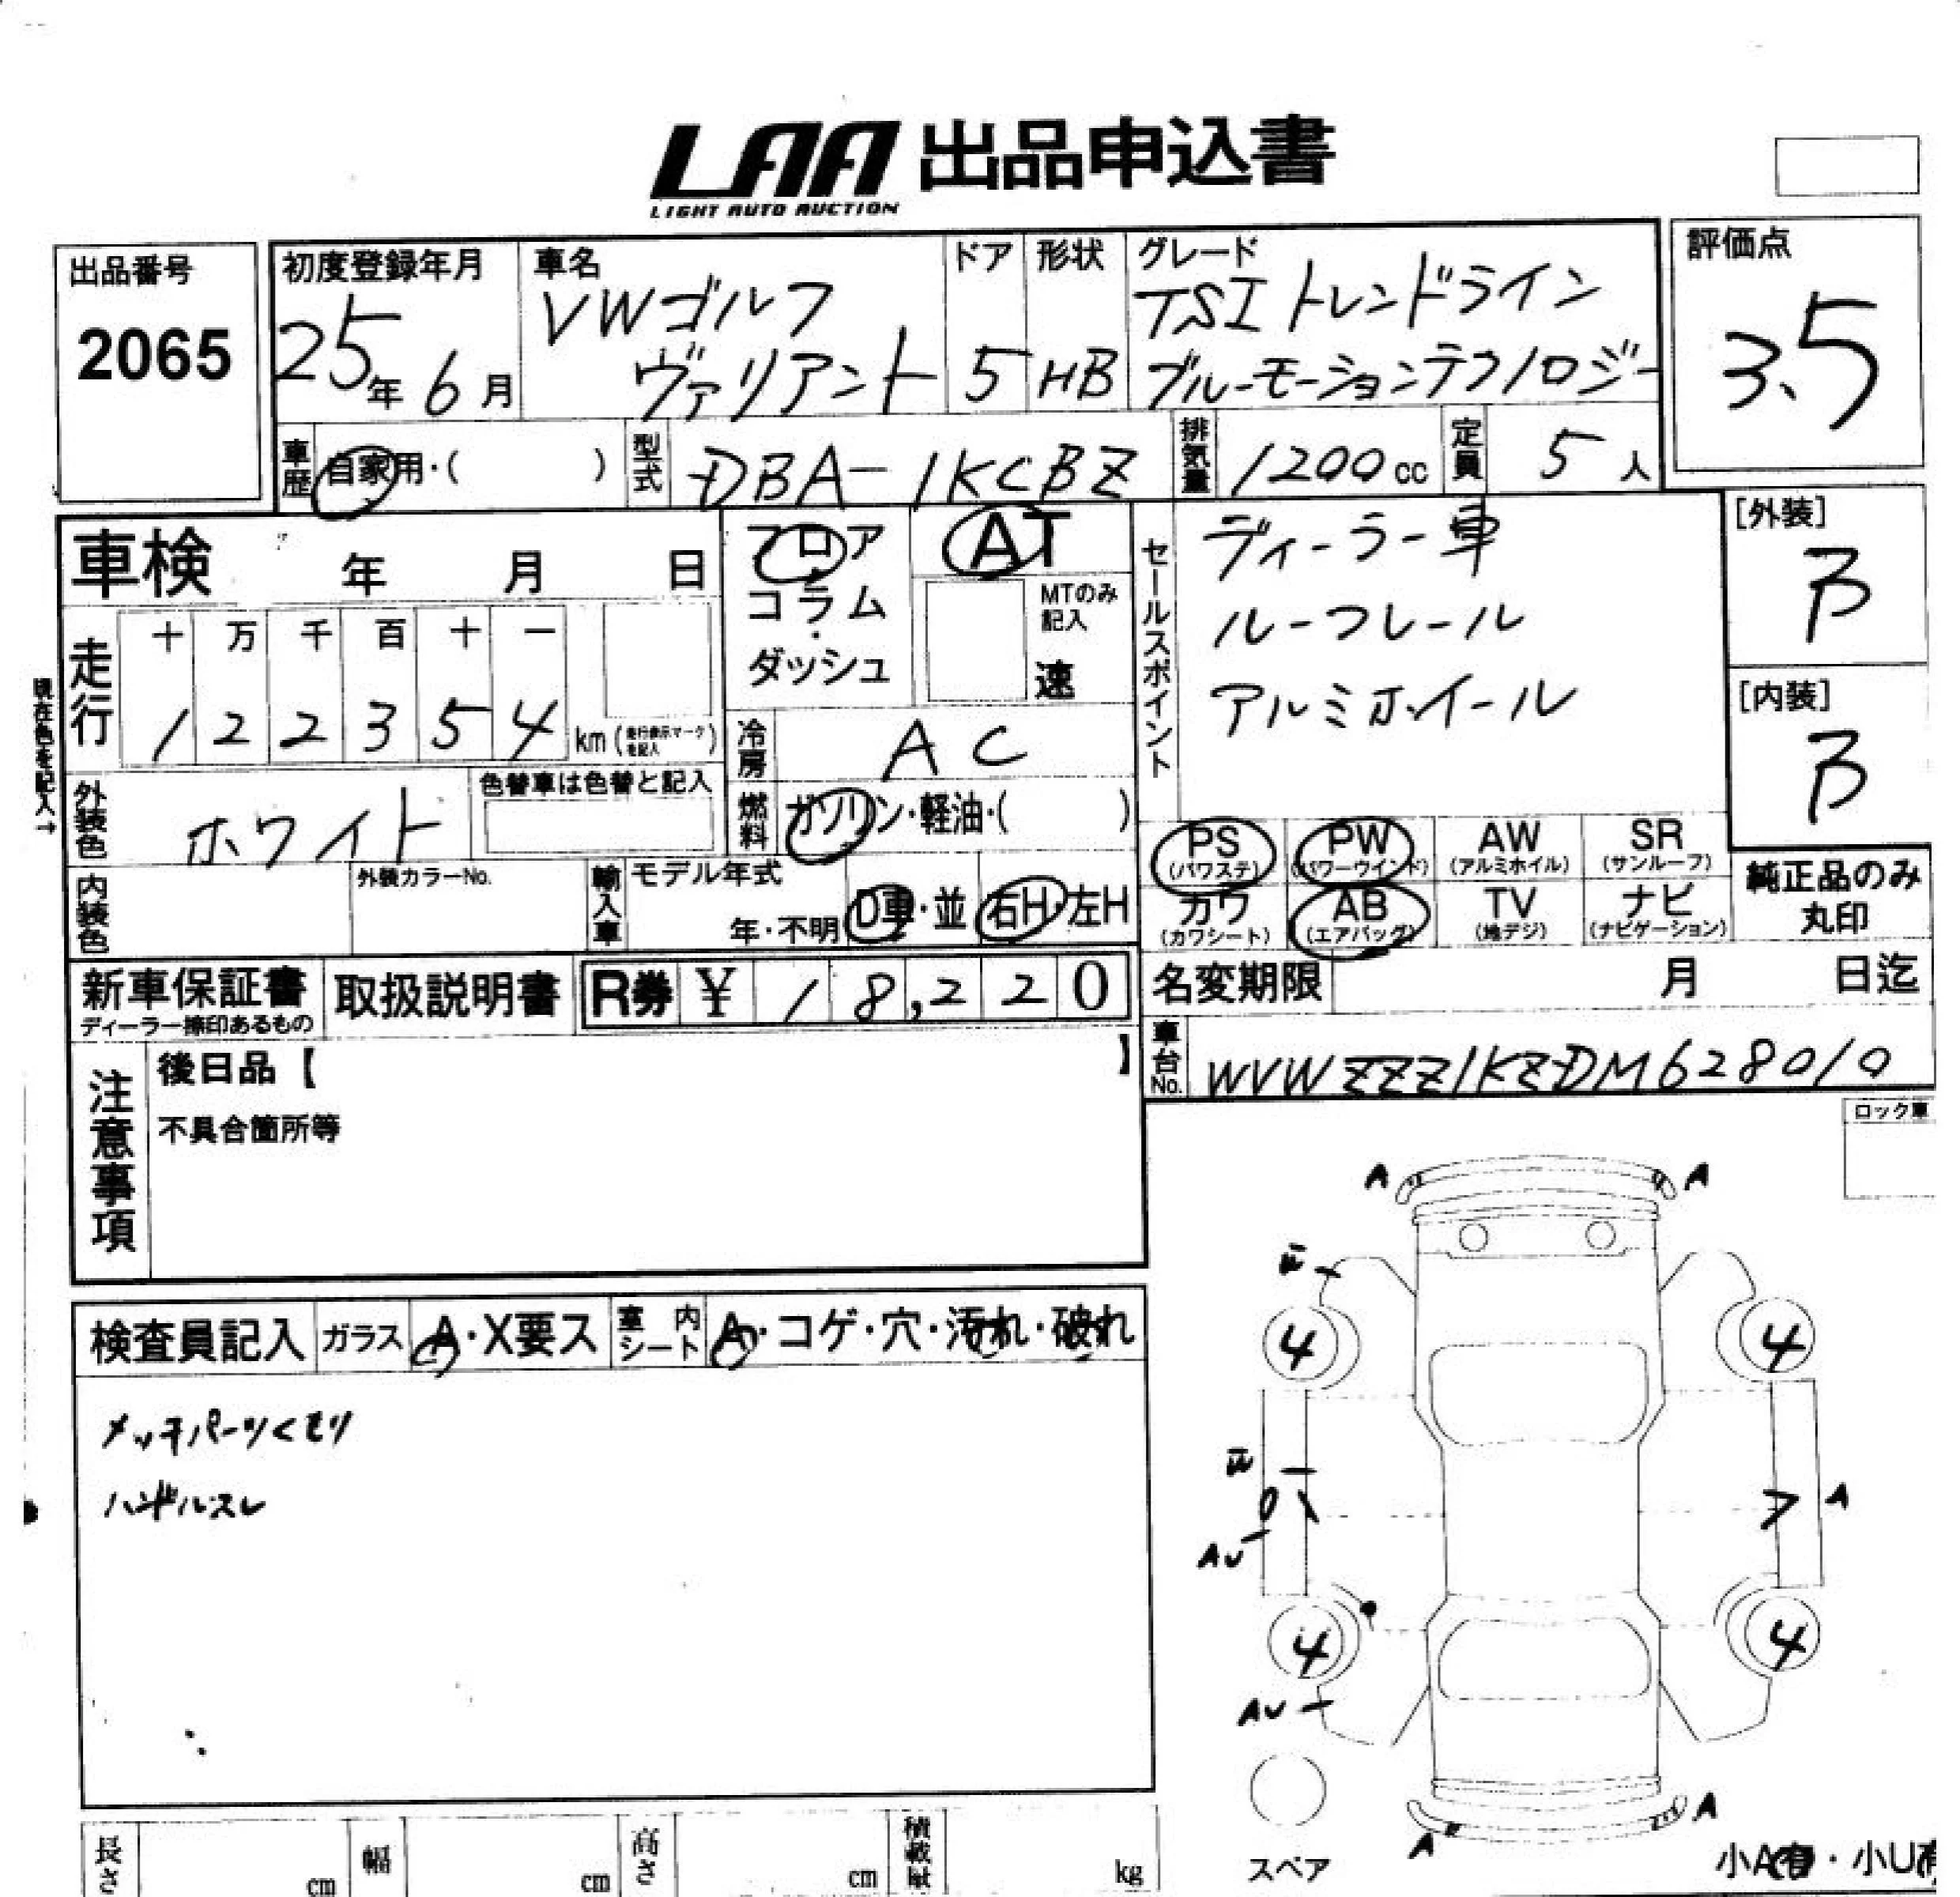 LAA 出品申込書
LIGHT AUTO AUCTION
出品番号
2065
初度登録年月
25年6月
車名
VWゴルフ
ヴァリアント
ドア
5
形状
HB
グレード
TSIトレンドライン
ブルーモーションテクノロジー
評価点
3.5
車歴
自家用・( )
型式
DBA-1KCBZ
排気量
1200cc
定員
5人
車検 年 月 日
フロア
コラム
・
ダッシュ
AT
MTのみ
記入
速
セールスポイント
ディーラー車
ルーフレール
アルミホイール
[外装]
B
[内装]
B
現在色を記入→
走行
十 万 千 百 十 一
1 2 2 3 5 4 km(走行表示マークを記入)
冷房
AC
外装色
ホワイト
色替車は色替と記入
燃料
ガソリン・軽油・( )
PS
(パワステ)
PW
(パワーウインド)
AW
(アルミホイル)
SR
(サンルーフ)
内装色
外装カラーNo.
輸入車
モデル年式
年・不明
D車・並
右H・左H
カワ
(カワシート)
AB
(エアバッグ)
TV
(地デジ)
ナビ
(ナビゲーション)
純正品のみ
丸印
新車保証書
ディーラー捺印あるもの
取扱説明書
R券 ¥ 18,220
名変期限 月 日迄
車台No.
WVWZZZ1KZDM628010
注意事項
後日品【 】
不具合箇所等
ロック車
検査員記入
ガラス
A・X要ス
室内シート
A・コゲ・穴・汚れ・破れ
メッキパーツくもり
ハンドルスレ
A A
4 4
A
AU
4 4
AU
A A
スペア
小A有・小U有
長さ cm
幅 cm
高さ cm
積載量 kg